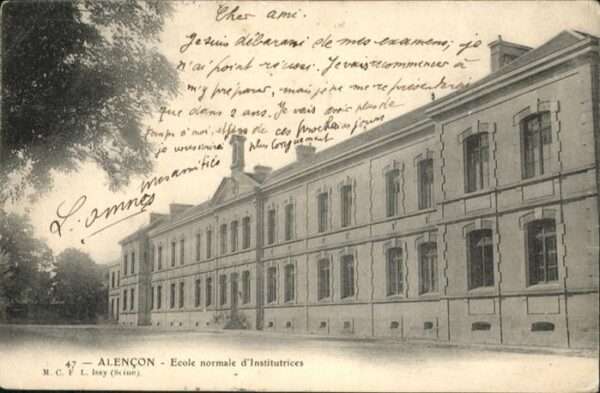 Cher ami.
Je suis débarassé de mes examens, je
n'ai point réussi. Je vais recommencer à
m'y préparer, mais je ne me représenterai
que dans 2 ans. Je vais avoir plus de
temps à moi, de ces prochains jours
je vous écrirai plus longuement
mes amitiés
L. omnès
47 — ALENÇON - Ecole normale d'Institutrices
M. C. F L. Issy (Seine).